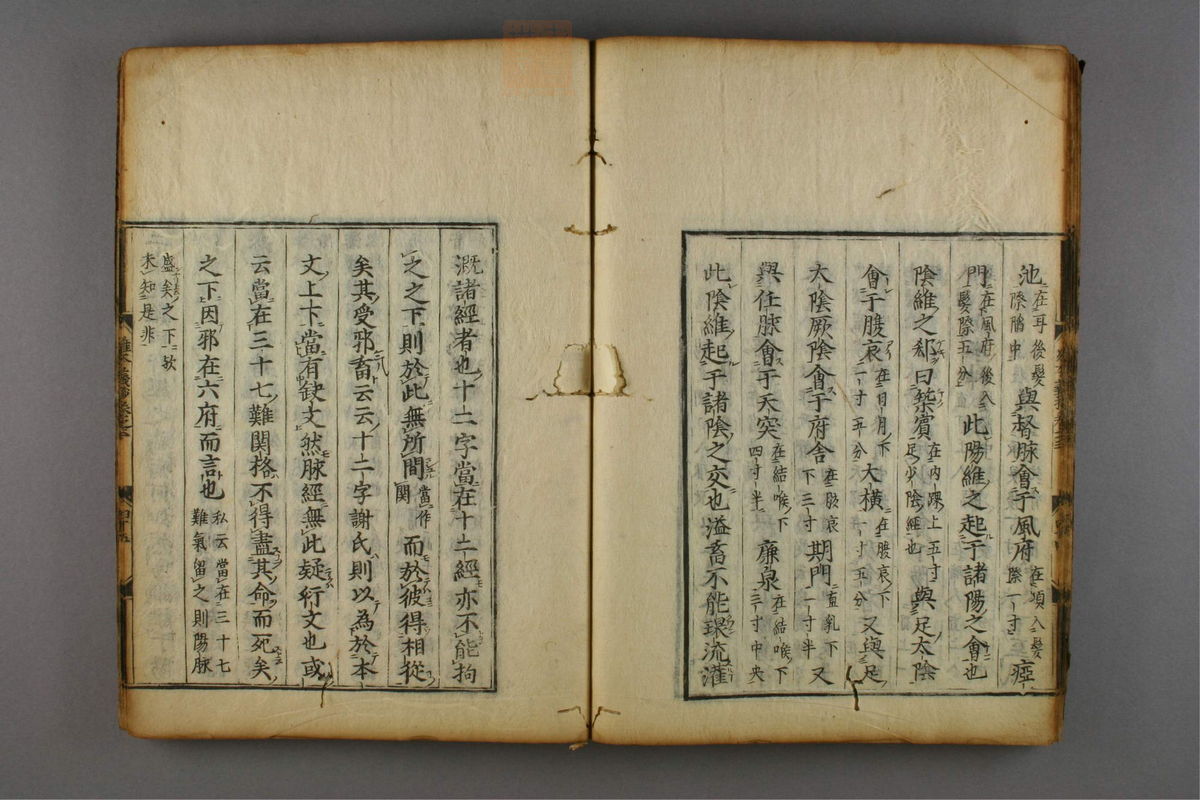 池在耳後髮際腦中與督脉會于風府在項入髮際一寸瘂
門在風府後入髮際五分此陽維之起于諸陽之會也
陰維之郄曰築賓在內踝上五寸足少陰經也與足太陰
會于腹哀在日月下一寸五分大橫在腹哀下一寸五分又與足
太陰厥陰會于府舍在腹哀下三寸期門直乳下一寸半又
與任脉會于天突在結喉下四寸半廉泉在結喉下三寸中央
此陰維起于諸陰之交也溢畜不能環流灌
溉諸經者也十二字當在十二經亦不能拘
之之下則於此無所間當作関而於彼得相從
矣其受邪畜云云十二字謝氏則以為於本
文上下當有缺文然脉經無此疑衍文也或
云當在三十七難関格不得盡其命而死矣
之下因邪在六府而言也私云當在三十七難氣留之則陽脉
盛矣之下歟未知是非